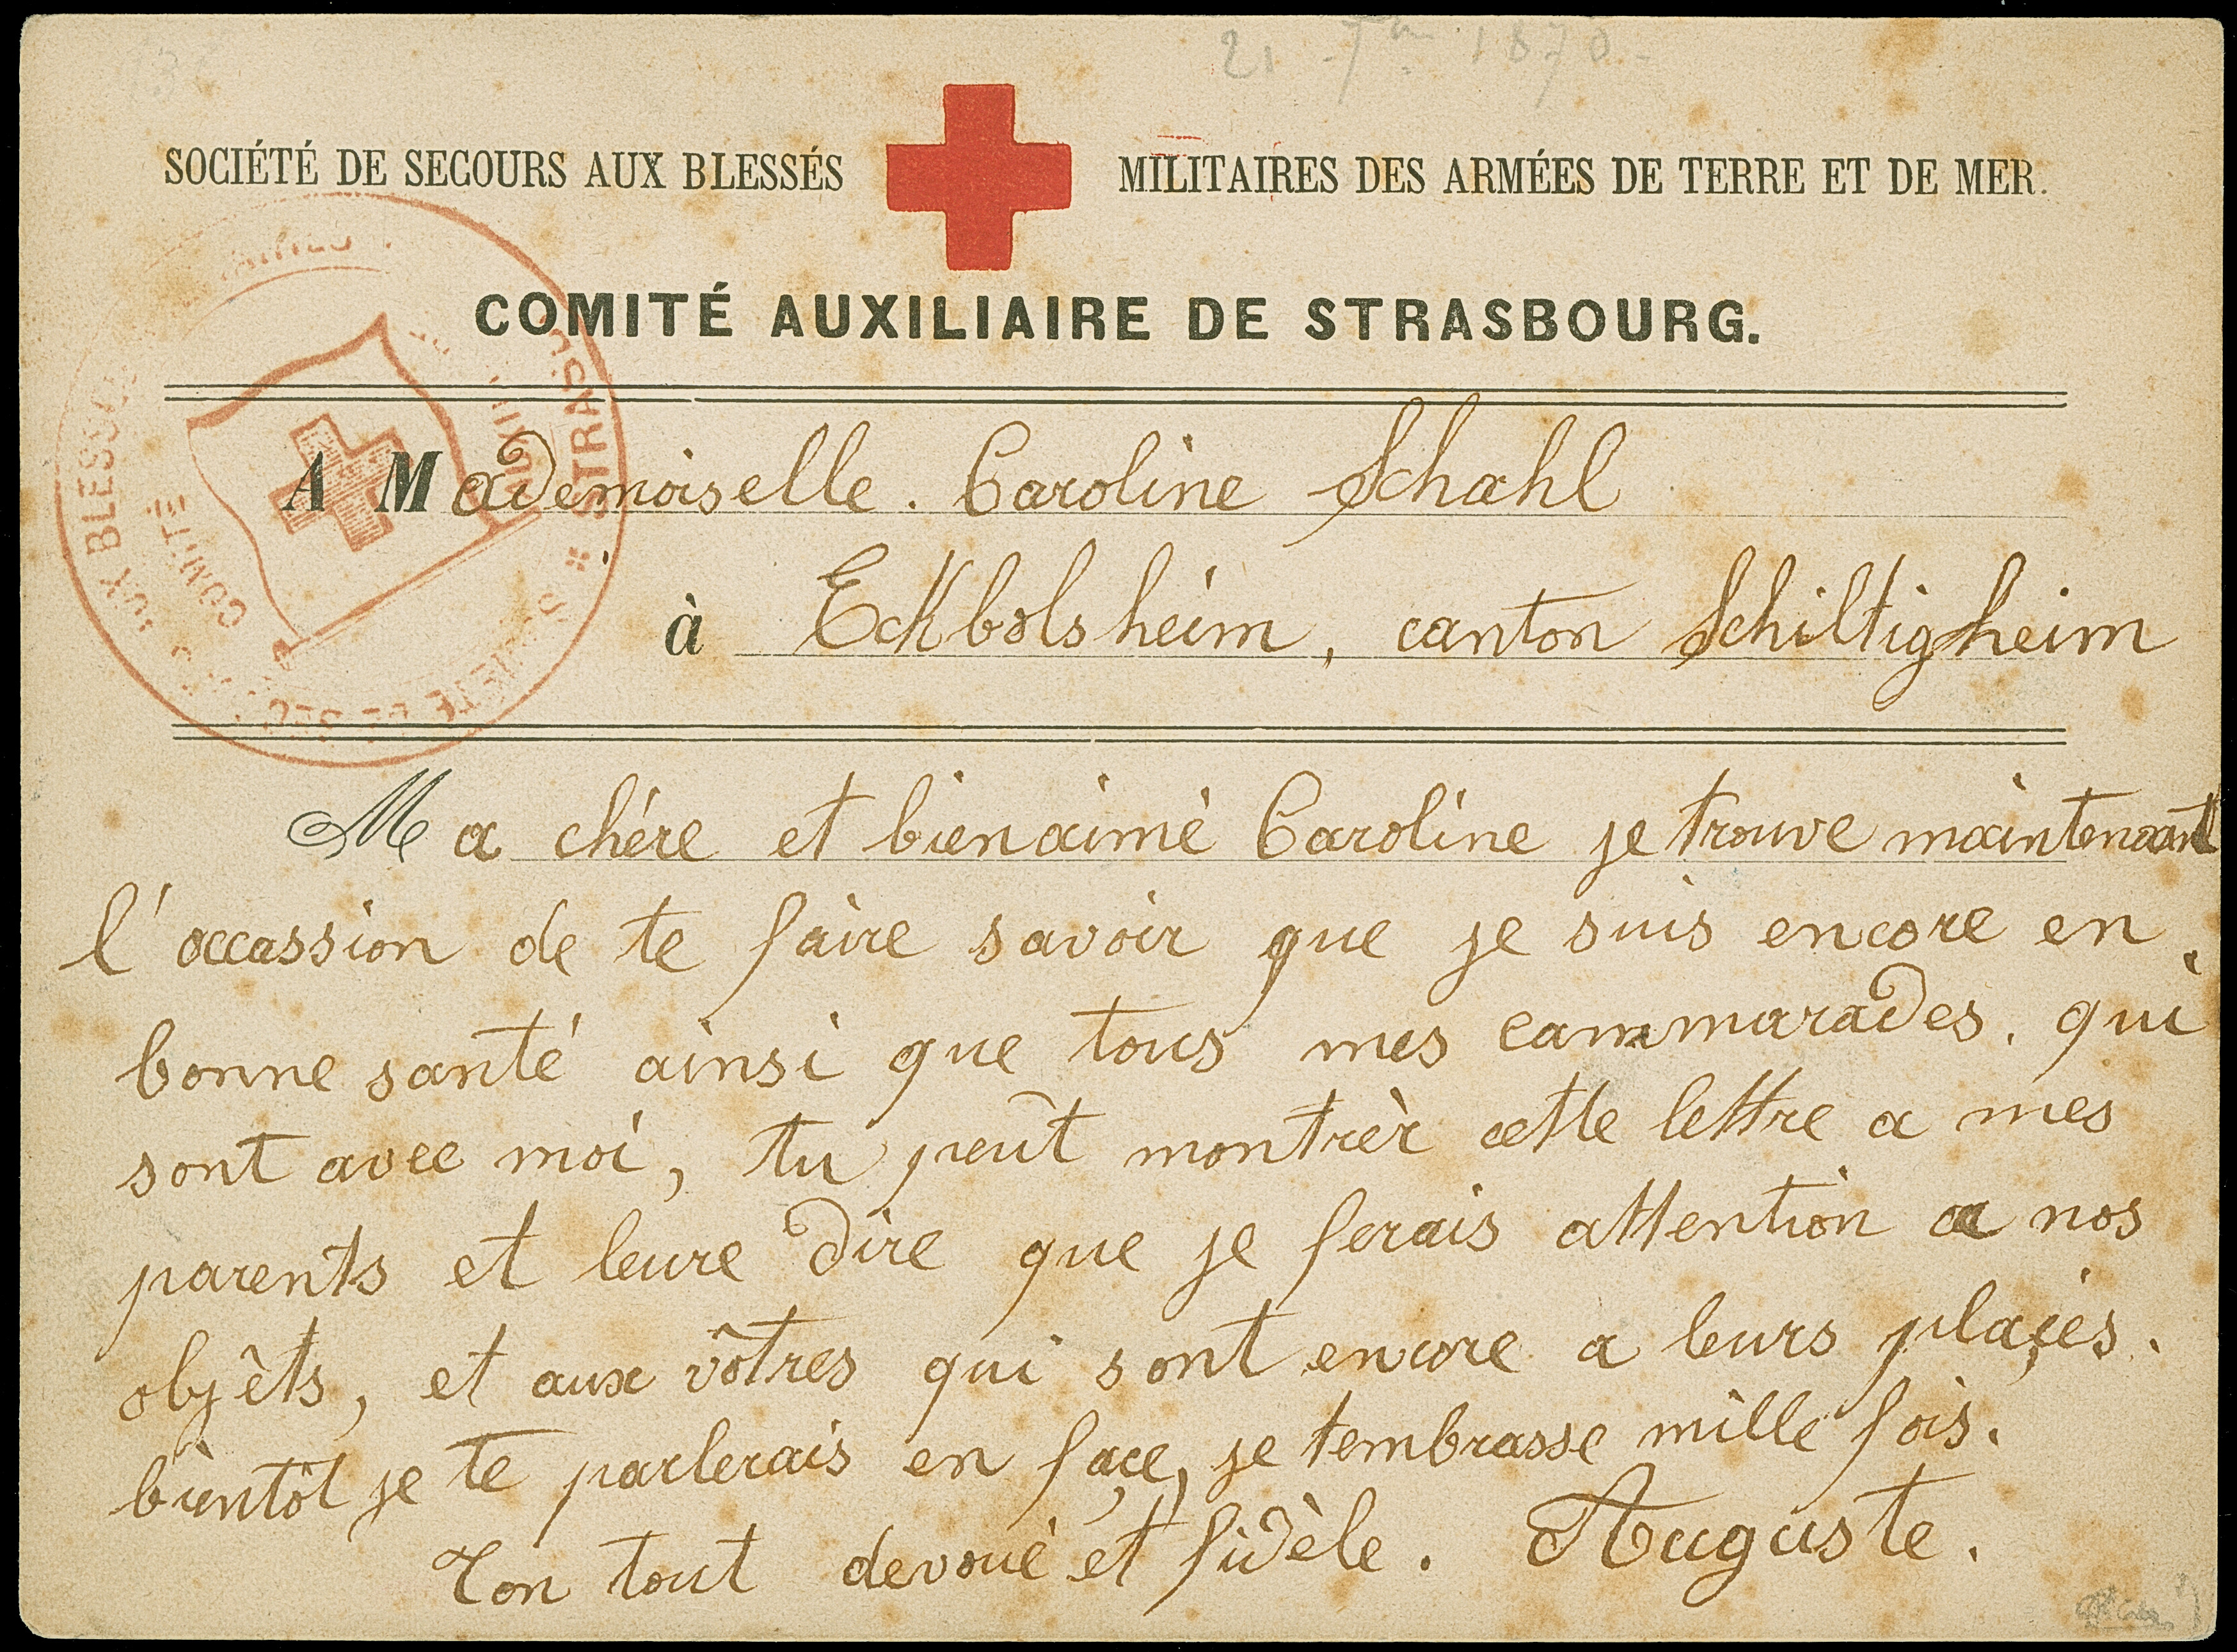 21 - 7bre 1870 -
SOCIÉTÉ DE SECOURS AUX BLESSÉS MILITAIRES DES ARMÉES DE TERRE ET DE MER.
COMITÉ AUXILIAIRE DE STRASBOURG.
SOCIÉTÉ DE SECOURS AUX BLESSÉS
COMITÉ AUXILIAIRE
STRASBOURG
A Mademoiselle. Caroline Schahl
à Eckbolsheim, canton Schiltigheim
Ma chére et bienaimé Caroline je trouve maintenant
l'occassion de te faire savoir que je suis encore en
bonne santé ainsi que tous mes cammarades. qui
sont avec moi, tu peût montrèr cette lettre a mes
parents et leure dire que je ferais attention a nos
objêts, et aux vôtres qui sont encore a leurs plaçes.
bientôt je te parlerais en façe, je tembrasse mille fois.
Ton tout devoué et fidèle. Auguste.